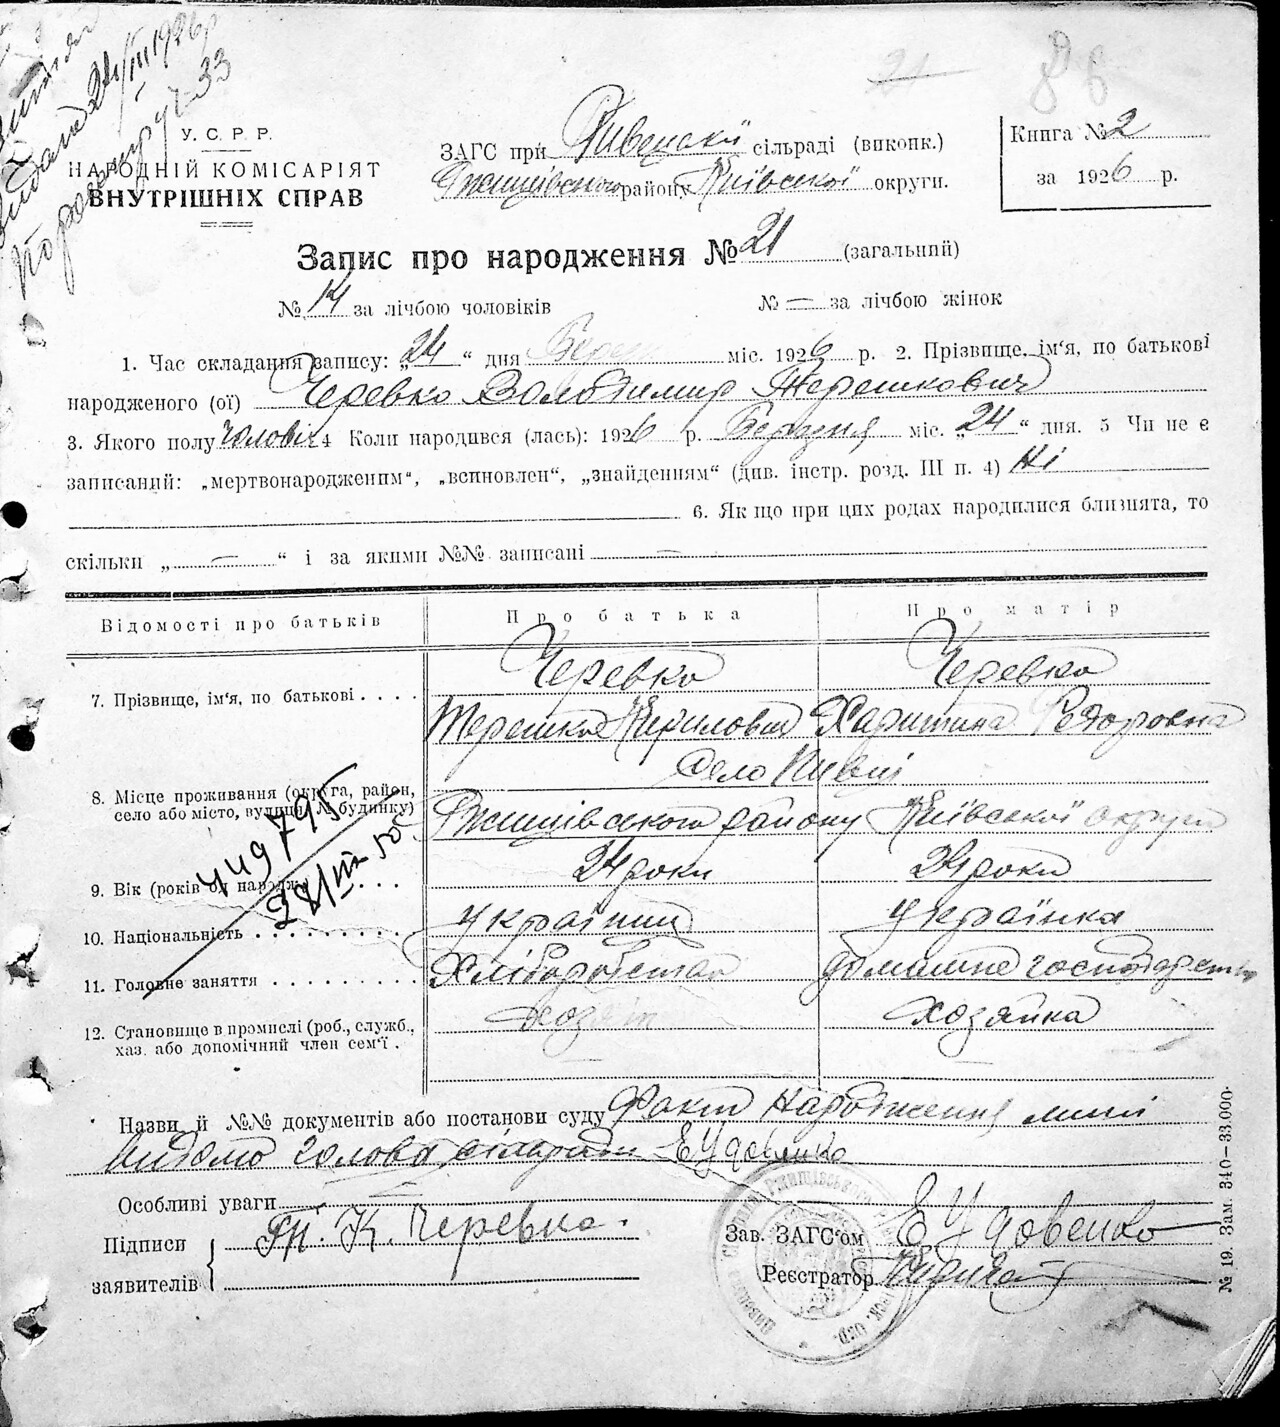 видано 24/III 1926 р
У. С. Р. Р.
НАРОДНІЙ КОМІСАРІЯТ
ВНУТРІШНІХ СПРАВ
21
ЗАГС при Пивецкій сільраді (виконк.)
Ржищівського району Київської округи.
Книга № 2
за 1926 р.
Запис про народження № 21 (загальний)
№ 14 за лічбою чоловіків № — за лічбою жінок
1. Час складання запису: „24“ дня Берез міс. 1926 р. 2. Прізвище, ім'я, по батькові
народженого (ої) Черевко Володимир Терешкович
3. Якого полу чоловіч 4 Коли народився (лась): 1926 р. Березня міс. „24“ дня. 5 Чи не є
записаний: „мертвонародженим“, „всиновлен“, „знайденням“ (див. інстр. розд. III п. 4) Ні
6. Якщо при цих родах народилися близнята, то
скільки „ — “ і за якими №№ записані —
Відомості про батьків Про батька Про матір
Черевко Черевко
7. Прізвище, ім'я, по батькові . . . .
Терешко Кирилович Харитина Федоровна
село Пивці
8. Місце проживання (округа, район,
село або місто, вулиця, № будинку)
Ржищівського району Київської округи
449795
28/III 50
9. Вік (років од народж.) . . . . 24 роки 24 роки
10. Національність . . . . . . . . . Українець Українка
11. Головне заняття . . . . . . . . . Хліборобство домашнє господарство
12. Становище в промислі (роб., служб.,
хаз. або допомічний член сем'ї .
хозяїн хозяйка
Назви й №№ документів або постанови суду Факт народження мині
видомо голова сільради Е Удовенко
Особливі уваги
Підписи
заявителів
Т. К. Черевко.
Зав. ЗАГС'ом Е Удовенко
Реєстратор
№ 19. Зам. 340—33.000.